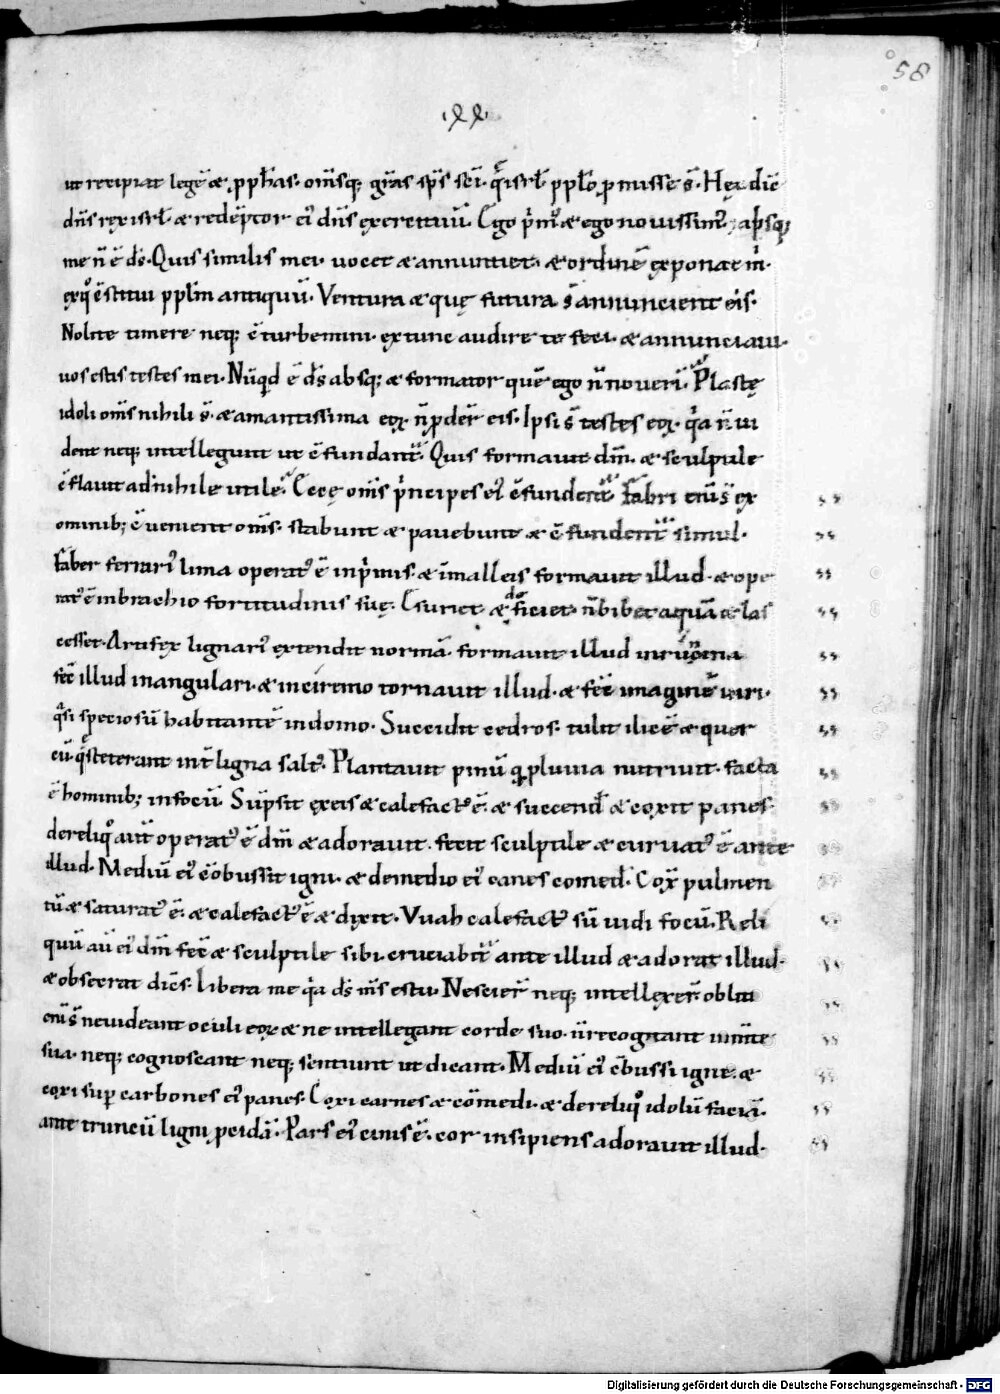 58
·XX·
ut recipiat legē & ꝓph̄as· om̄sq; gr̄as sp̄s sc̄i· q̄ isrl̄ ppl̄o ꝓmisse s̄· Hęc dic̄
dn̄s rex isrl̄· & redēptor ei' dn̄s exercituū· Ego p̍m' & ego nouissim'· & absq;
me n̄ ē ds̄· Quis similis mei· uocet & annuntiet· & ordinē exponat m̍·
ex q°̄ c̄stitui ppl̄m antiquū· Ventura & quę futura s̄ annuncient eis·
Nolite timere neq; c̄turbemini· ex tunc audire te feci· & annunciaui·
uos estis testes mei· Nūqd̄ ē ds̄ absq; & formator quē ego n̄ nouerī· Plastę
idoli om̄s nihili s̄· & amantissima eoꝝ n̄ ꝓder̄ eis· Ipsi s̄ testes eoꝝ· q̍a n̄ ui
dent neq; intellegunt ut c̄fundant̄· Quis formauit dm̄· & sculptile
c̄flauit ad nihile utile· Ecce om̄s p̍ncipes ei' c̄fundent̄· Fabri eni s̄ ex
ominib; c̄uenient om̄s· stabunt & pauebunt & c̄fundent̄ simul·
Faber ferrari' lima operat' ē in p̍mis· & ī malleis formauit illud· & ope
rat' ē in brachio fortitudinis suę· Esuriet· & deficiet· n̄ bibet aquā & las
cesset· Artifex lignari' extendit normā· formauit illud in runcina
fec̄ illud in angulari· & in circino tornauit illud· & fec̄ imaginē uiri·
q̍si speciosū habitantē in domo· Succidit cedros· tulit ilicē & quer
cū· q̄ steterant int̄ ligna salt'· Plantauit pinū q̄ pluuia nutriuit· facta
ē hominib; in focū· Sūpsit ex eis & calefact' ē· & succend̄ & coxit panes·
de reliq° aut̄ operat' ē dm̄ & adorauit· fecit sculptile & curuat' ē ante
illud· Mediū ei' c̄bussit igni· & de medio ei' canes comed̄· Cox̄ pulmen
tū & saturat' ē· & calefact' ē & dixit· Vuah calefact' sū uidi focū· Reli
quū aū ei' dm̄ fec̄ & sculptile sibi· ante illud & adorat illud·
& obsecrat dicēs· Libera me q̍a ds̄ m̄s es tu· Nescier̄ neq; intellexer̄ obliti
eni s̄ ne uideant oculi eoꝝ & ne intellegant corde suo· n̄ recogitant in m̄te
sua· neq; cognoscant neq; sentiunt ut dicant· Mediū ei' c̄bussi igne· &
coxi sup̄ carbones ei' panes· Coxi carnes & cōmedi· & de reliq° idolū faciā·
ante truncū ligni ꝓcidā· Pars ei' cinis ē· cor insipiens adorauit illud·
Digitalisierung gefördert durch die Deutsche Forschungsgemeinschaft - DFG